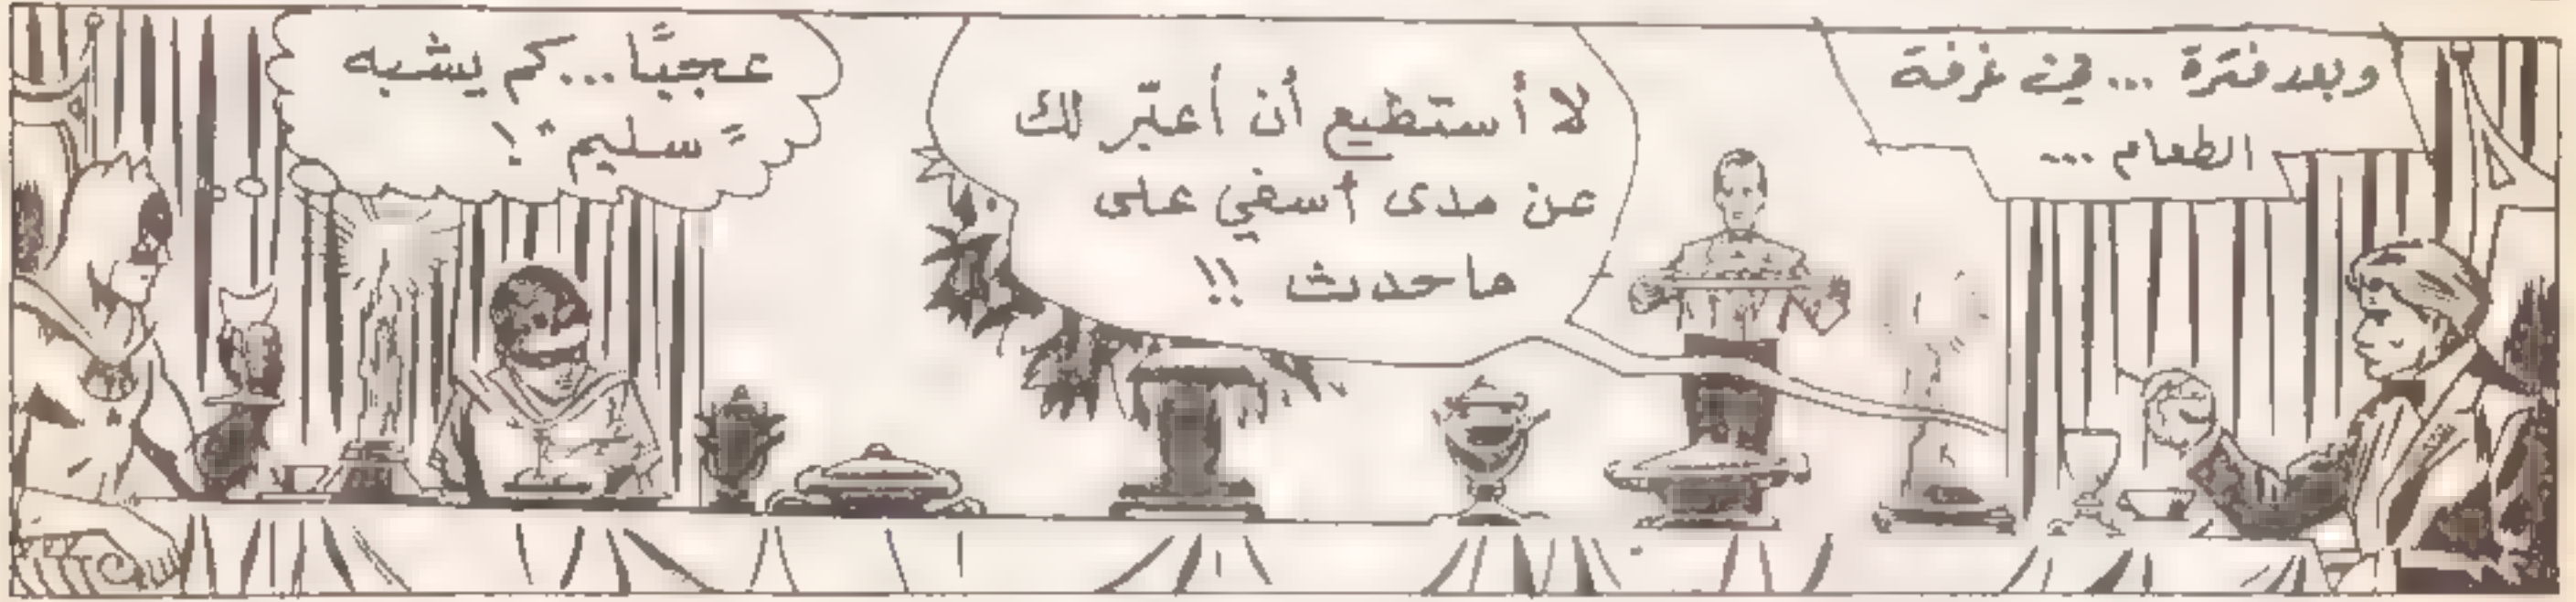 وبعد فترة ... في غرفة
الطعام ...
لا أستطيع أن أعبّر لك
عن مدى أسفي على
ما حدث !!
عجبًا ... كم يشبه
"سليم" !